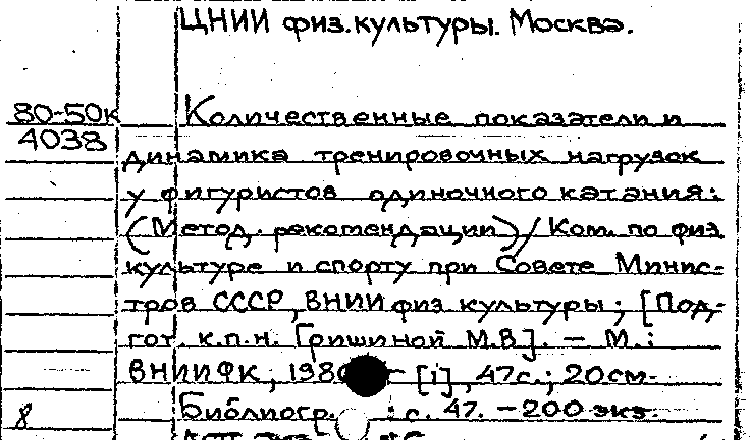 ЦНИИ физ.культуры. Москва.
80-50к Количественные показатели и
4038
динамика тренировочных нагрузок
у фигуристов одиночного катания:
(Метод. рекомендации)/Ком. по физ.
культуре и спорту при Совете Минис-
тров СССР, ВНИИ физ культуры; [Под-
гот. к.п.н. Гришиной М.В]. - М.:
ВНИИФК, - [1], 47с.; 20см-
8 Библиогр. : с. 47. - 200 экз.